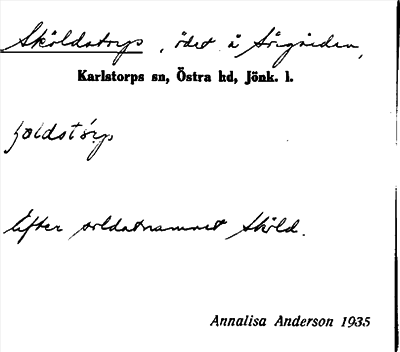 Sköldstorp, ödet å
Karlstorps sn, Östra hd, Jönk. l.
Efter soldatnamnet Sköld.
Annalisa Anderson 1935